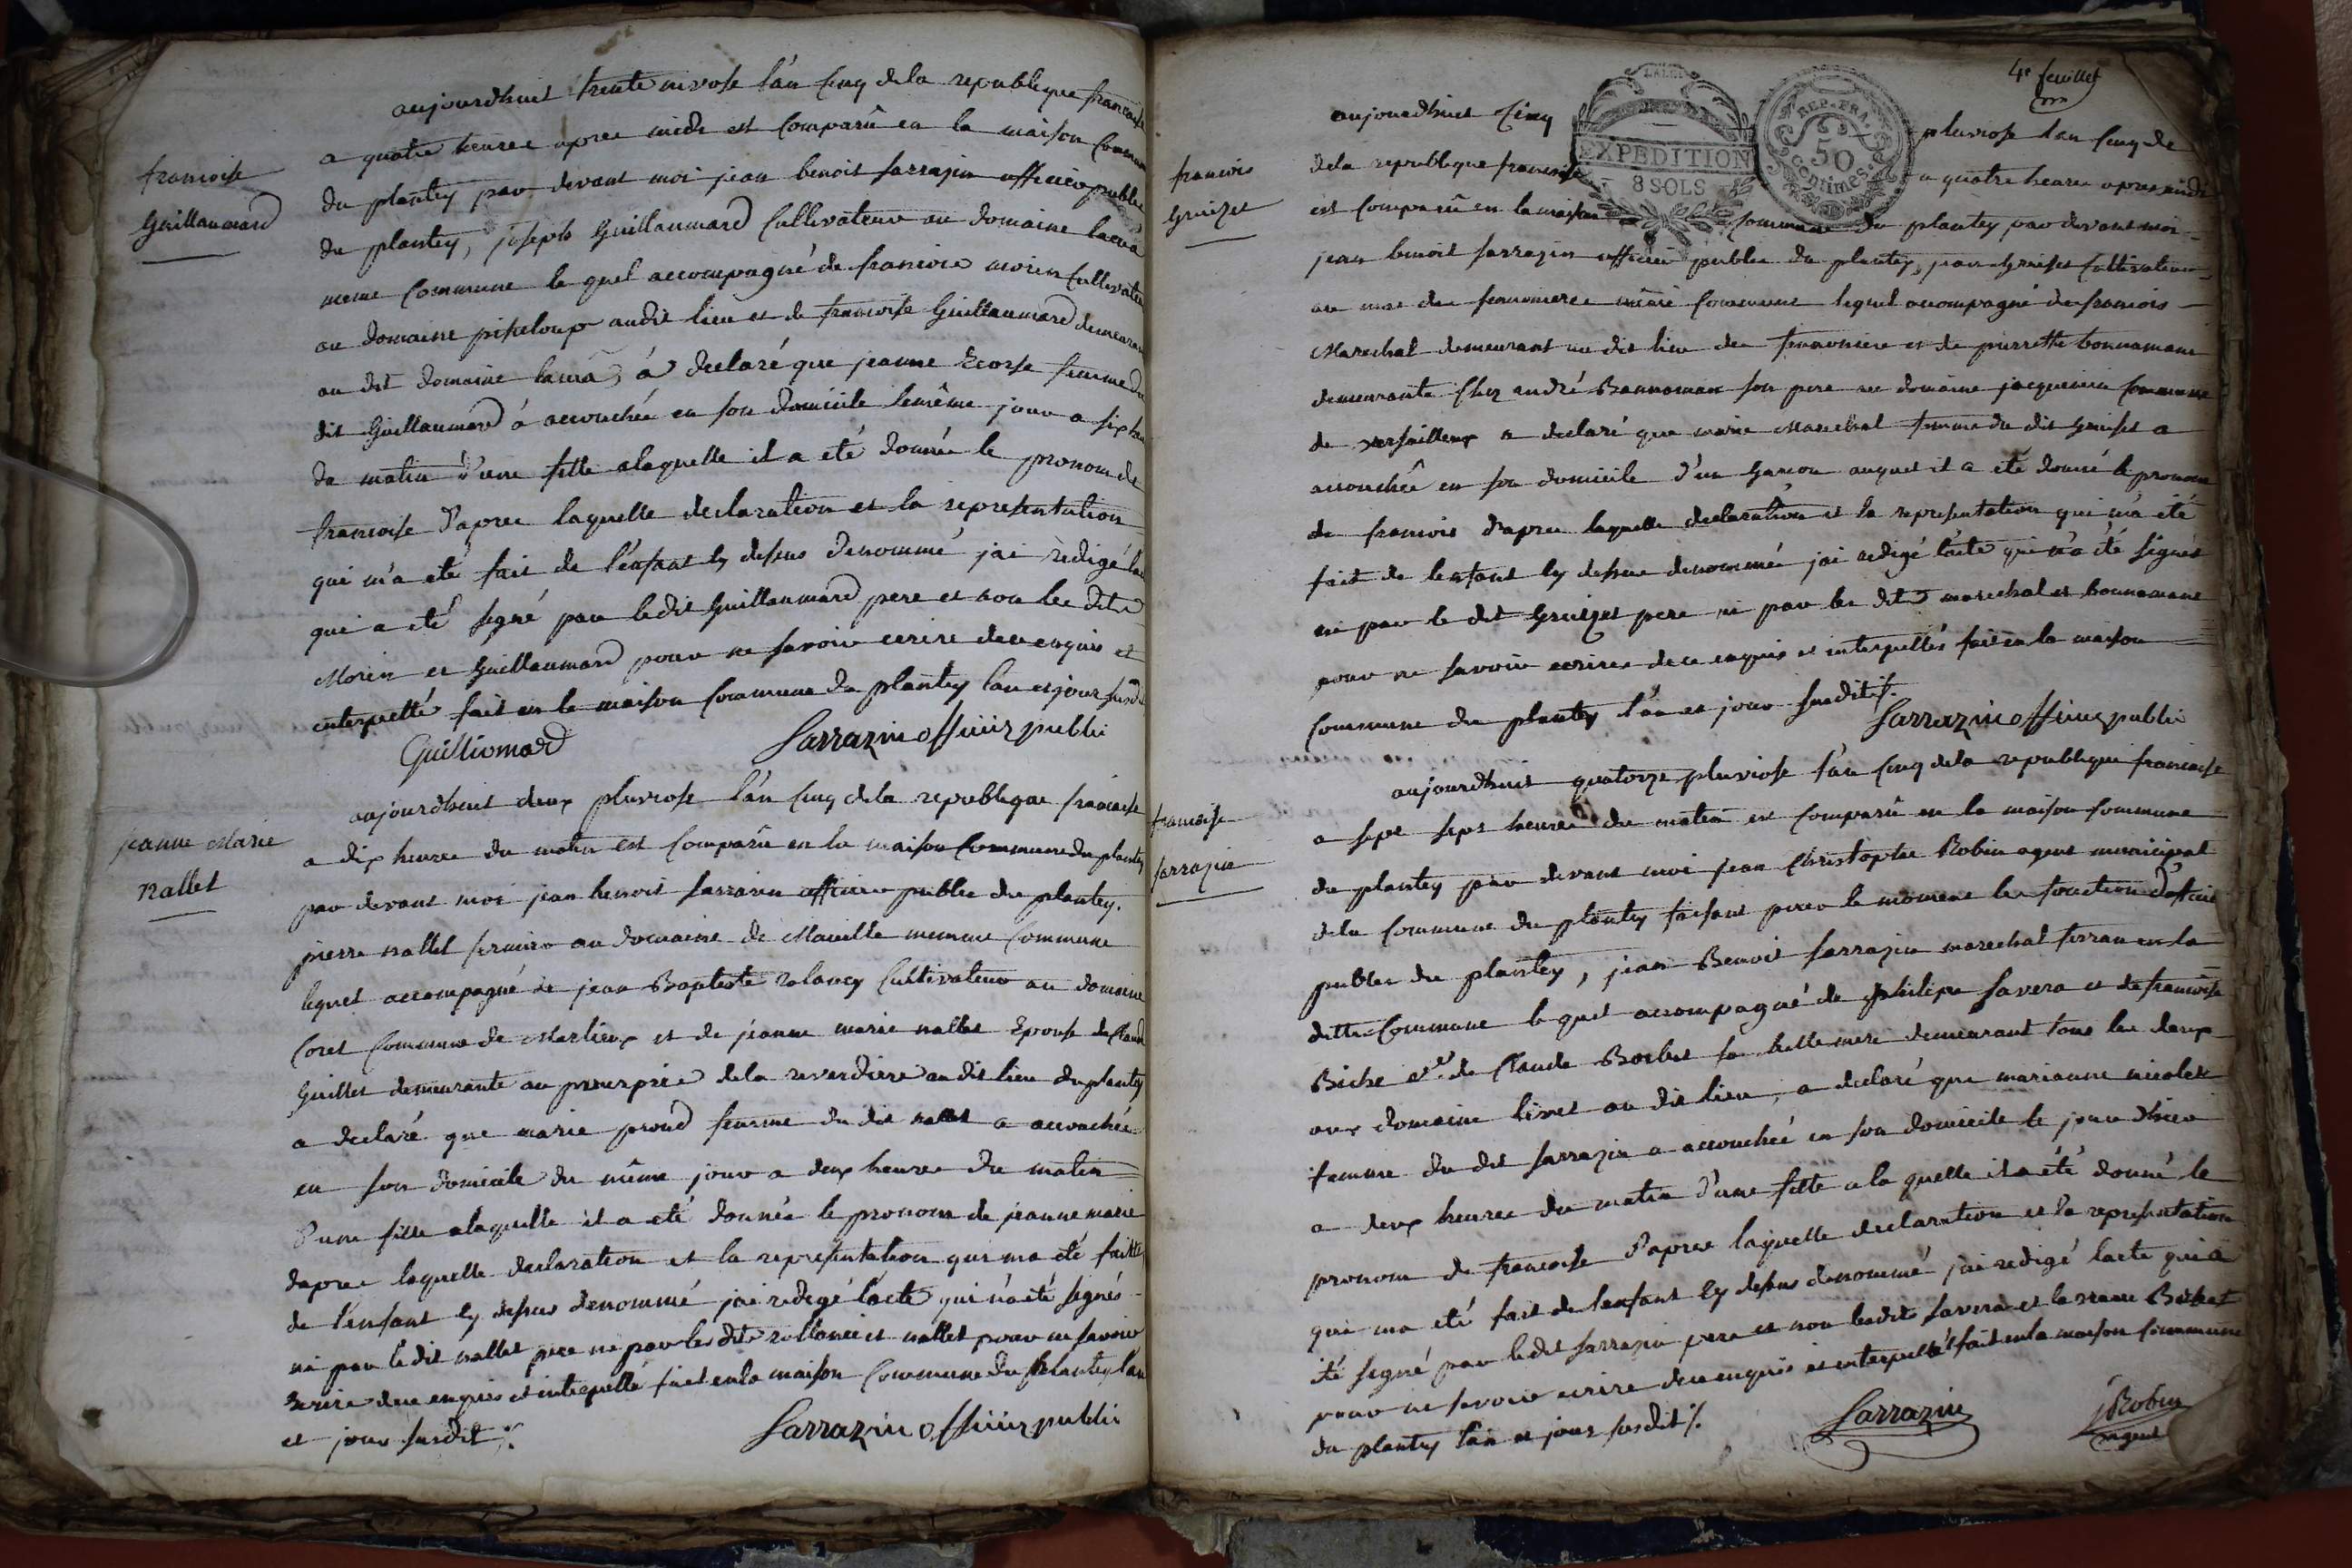 aujourdhuit trente nivose l'an cinq de la republique francaise
a quatre heures apres midi est comparû en la maison commune
francoise
Guillaumard
du plantey par devant moi jean benoit sarrazin officier public
du plantey, joseph Guillaumard Cultivateur au domaine
meme Commune le quel accompagné de francois morin Cultivateur
au domaine pisseloup audit lieu et de francoise Guillaumard demeurant
au dit domaine à declaré que jeanne Ecorse femme du
dit Guillaumard à accouchée en son domicile le même jour a six
du matin d'une fille alaquelle il a eté donnée le pronom de
francoise d'apres laquelle declaration et la representation
qui m'a eté fait de l'enfant cy dessus denommé jai redigé
qui a eté signé par ledit Guillaumard pere et non les dits
Morin et Guillaumard pour ne savoir ecrire de ce enquis et
interpellé fait en la maison Commune du plantey l'an et jour susdit
Guilliomard Sarrazin officier public
aujourdhuit deux pluviose l'an cinq de la republique francaise
jeanne Marie
Nallet
a dix heures du matin est comparû en la maison Commune du plantey
par devant moi jean benoit sarrasin officier public du plantey.
pierre nallet fermier au domaine de Maville meme Commune
lequel accompagné de jean Baptiste rolancy Cultivateur au domaine
Coret Commune de Marlieux et de jeanne marie nallet Epouse de Claude
Guillet demeurante au de la reverdiere audit lieu du plantey
a declaré que marie proud femme du dit nallet a accouchée
en son domicile du même jour a deux heures du matin
d'une fille alaquelle il a eté donnée le pronom de jeanne marie
dapres laquelle declaration et la representation qui ma eté faitte
de l'enfant cy dessus denommé jai redigé l'acte qui n'a eté signés
ni par le dit nallet pere ni par les dits rollancis et nallet pour ne savoir
Ecrire de ce enquis et interpellé fait en la maison Commune du plantey l'an
et jour susdit ./.
Sarrazin officier public
4e feuillet
EXPEDITION
8 SOLS
REP. FRA.
50
Centimes
aujourdhuit Cinq pluviose l'an cinq de
francois
Gruizet
dela republique francaise a quatre heures apres midi
est comparû en la maison commune du plantey par devant moi
jean benoit sarrazin officier public du plantey, jean Gruiset Cultivateur
au mas des même Commune lequel accompagné de francois
Marechal demeurant au dit lieu de et de pierrette bonnamour
demeurante Chez andré Bonnamour son pere au domaine jacquemin Commune
de versailleux a declaré que marie Marechal femme du dit Gruiset a
accouchée en son domicile d'un Garcon auquel il a eté donné le pronom
de francois d'apres laquelle declaration et la representation qui m'a eté
fait de lenfant cy dessus denommé jai redigé l'acte qui n'a eté signés
ni par le dit Gruizet pere ni par les dits marechal et bonnamour
pour ne savoir ecrires de ce enquis et interpellés fait en la maison
Commune du plantey l'an et jour susdit ./.
Sarrazin officier public
aujourdhuit quatorze pluviose l'an cinq dela republique francaise
francoise
sarrazin
a sept sept heures du matin est comparû en la maison Commune
du plantey par devant moi jean Christophe Robin agent municipal
dela Commune du plantey faisant pour le moment les fonction d'officier
public du plantey, jean Benoit sarrazin marechal ferran en la
ditte Commune le quel accompagné de philipe savera et de francoise
Biche ve de Claude Borbet sa belle mere demeurant tous les deux
aux domaine livet au dit lieu, a declaré que marianne nicolet
femme du dit sarrazin a accouchée en son domicile le jour d'hier
a deux heures du matin d'une fille a la quelle il a été donné le
pronom de francoise d'apres laquelle declaration et la representation
qui ma eté fait de lenfant cy dessus denommé jai redigé lacte qui a
été signé par ledit sarrazin pere et non lesdits savera et la veuve
pour ne savoir ecrire de ce enquis et interpellés fait en la maison Commune
du plantey l'an et jour susdit ./.
Sarrazin jRobin
agent